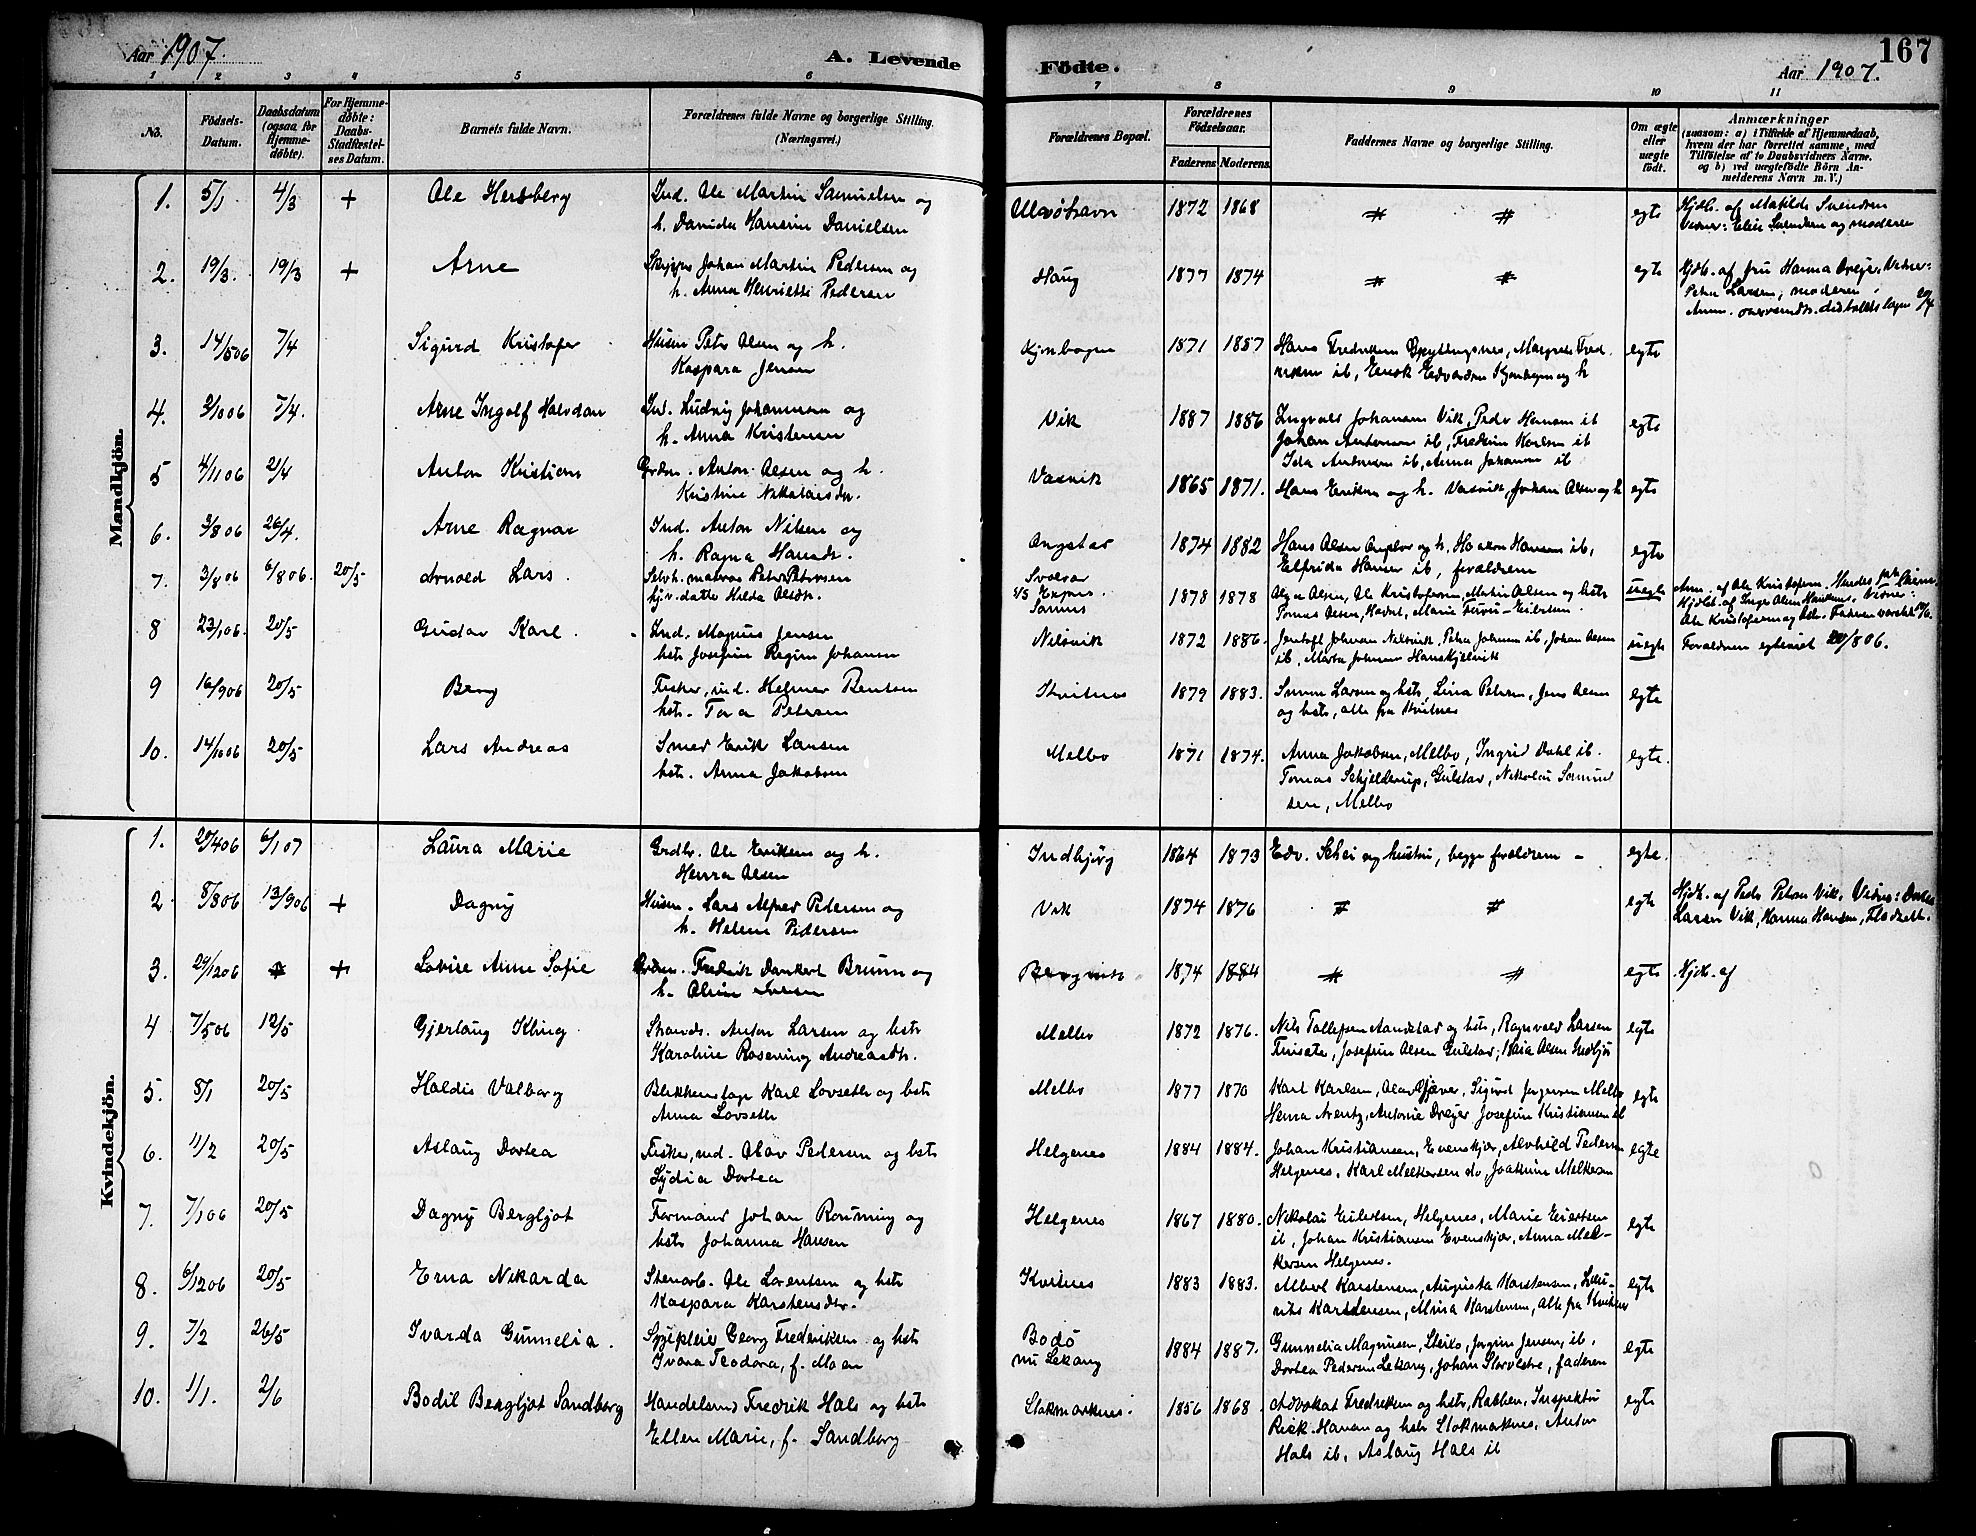 Aar 1907.
A. Levende
Födte.
Aar 1907.
167
1 2 3 4 5 6 7 8 9 10 11
No.
Födsels-Datum.
Daabsdatum (ogsaa for Hjemmedøbte).
For Hjemmedøbte: Daabs-Stadfæstelses Datum.
Barnets fulde Navn.
Forældrenes fulde Navne og borgerlige Stilling. (Næringsvei.)
Forældrenes Bopæl.
Forældrenes Födselsaar.
Faderens Moderens
Faddernes Navne og borgerlige Stilling.
Om ægte eller uægte født.
Anmærkninger
(saasom: a) i Tilfælde af Hjemmedaab, hvem der har forrettet samme, med Tilføielse af to Daabsvidners Navne. og b) ved uægtefødte Börn Anmelderens Navn m. V.)
Mandkjön.
1. 5/1 4/3 + Ole Hersberg Ind. Ole Martin Samuelsen og
h. Danida Hansine Danielsen
Ulvøhavn 1872 1868 # # egte Hjdb. af Matilde Svendsen
Vidner: Elise Svendsen og moderen
2. 19/3. 19/3 + Arne Skipper Johan Martin Pedersen og
h. Anna Henriette Pedersen
Haug 1877 1874 # # egte Hjdb. af Fru Hanna Dreyer. Vidner:
Petra Larsen, moderen
3. 14/5 06 7/4 Sigurd Kristofer Husm Peter Olsen og h.
Kaspara Jensen
1871 1857 Hans Fredriksen
egte
4. 3/10 06 7/4. Arne Ingolf Halvdan Ind. Ludvig Johannesen og
h. Anna Kristensen
Vik 1887 1886 Ingvald Johansen Vik, Peder Hansen ib
Johan Antonsen ib, Fredrim Karlsen ib
Ida Andersen ib, Anna Johansen ib
egte
5 4/11 06 21/4 Anton Kristian Grdm. Anton Olsen og h.
Kristine Nikolaisdr.
Vasvik 1865 1871. Hans Eriksen og h. Vasvik, Johan Olsen og h egte
6. 3/8 06 26/4. Arne Ragnar Ind. Anton Nilsen og
h. Ragna Hansdr.
1874 1882 Hans Olsen og h. Haakon Hansen ib,
Elfrida Hansen ib, forældrene
egte
7. 3/8 06 6/8 06. 20/5 Arnold Lars. Selvh. matros Peter Petersen
hjv. datter Hilda Olsdr.
Svolvær
S/S Express.
1878 1878 Olga Olsen, Ole Kristofersen, Martin Olsen og hstr
Tomas Olsen, Marie
uegte
8 23/1 06. 20/5 Gudar Karl. Ind. Magnus Jensen
hstr Josefine Regine Johansen
Nilsvik 1872 1886. Jentoft Johnsen Nilsvik, Petra Johnsen ib, Johan Olsen
ib, Marta Johnsen
uegte Forældrene egteviet 20/8 06.
9 16/9 06 20/5 Berg Fisker, ind. Helmer Bentsen
hstr. Tora Petersen
Kvitnes 1879 1883. Simon Larsen og hstr, Lina Petersen, Jens Olsen
og hstr, alle fra Kvitnes
egte
10. 14/10 06 20/5 Lars Andreas Smed Erik Lansen
hstr. Anna Jakobsen
Melbo 1871 1874. Anna Jakobsen, Melbo, Ingrid Dahl ib.
Tomas Schjelderup, Gulstad, Nikolai Samuelsen, Melbo
egte.
Kvindekjön.
1. 20/4 06 6/1 07 Laura Marie Grdbr. Ole Eriksen og h.
Henra Olsen
Indbjörg 1864 1873 Edv. Schei og hustru, begge forældrene - egte.
2 8/8 06 13/9 06 + Dagny Husm. Lars Alfred Petersen og
h. Helene Pedersen
Vik 1874 1876 # # egte Hjdb. af Peder Petersen Vik. Vidner:
Larsen Vik, Hanna Hansen,
3. 29/12 06 # + Lovise Anne Sofie Grdm. Fredrik Dankert Bruun og
h. Oline Iversen
Bergvik 1874 1884 # # egte Hjdb. af
4 7/5 06 12/5 Gjerlaug Kling Strands. Anton Larsen og hstr
Karoline Rosening Andreasdtr.
Melbo 1872 1876. Nils Tollefsen Sandstad og hstr, Ragnvald Larsen
Josefine Olsen Gulstad, Maia Olsen Indbjör
egte
5. 8/1 20/5 Haldis Valborg Blikkenslager Karl Lovseth og hstr
Anna Lovseth
Melbo 1877 1870 Karl Karlsen, Olav Gjæver, Sigurd Jörgensen Melbo
Henna Arentz, Antonie Dreyer Josefine Kristiansen ib
egte
6. 11/2 20/5 Aslaug Dortea Fisker, ind. Olav Pedersen og hstr
Lydia Dortea
Helgenes 1884 1884. Johan Kristiansen, Evenskjer, Alvhild Pedersen
Helgenes. Karl Melkersen do, Joakime Melkersen
egte
7. 7/1 06 20/5 Dagny Bergljot Formand Johan Ronning og
hstr Johanna Hansen
Helgenes 1867 1880. Nikolai Eilertsen, Helgenes, Marie Eilertsen
ib, Johan Kristiansen Evenskjer, Anna Mel-
kersen Helgenes.
egte
8. 6/12 06 20/5 Erna Nekarda Stenarb. Ole Lorentsen og hstr
Kaspara Karstensdtr.
Kvitnes 1883 1883. Albert Karstensen, Augusta Karstensen, Lau-
rits Karstensen, Mina Karstensen, Alle fra Kvitnes
egte
9. 7/2 26/5 Ivarda Gunnelia. Georg Frederiksen og hstr
Ivara Teodora, f. Moan
Bodö
nu Lekang
1884 1887. Gunnelia Magnusen, Steilo, Jörgine Jensen, ib.
Dortea Pedersen Lekang, Johan Storvestre, faderen
egte
10. 1/1. 2/6 Bodil Bergljot Sandborg Handelsmd Fredrik Hals og hstr
Ellen Marie, f. Sandborg
Stokmarknes. 1856 1868. Advokat Fredriksen og hstr, Rabben, Inspektör
Rick. Hanan og hstr Stokmarknes, Anton
Hals ib. Aslaug Hals ib
egte